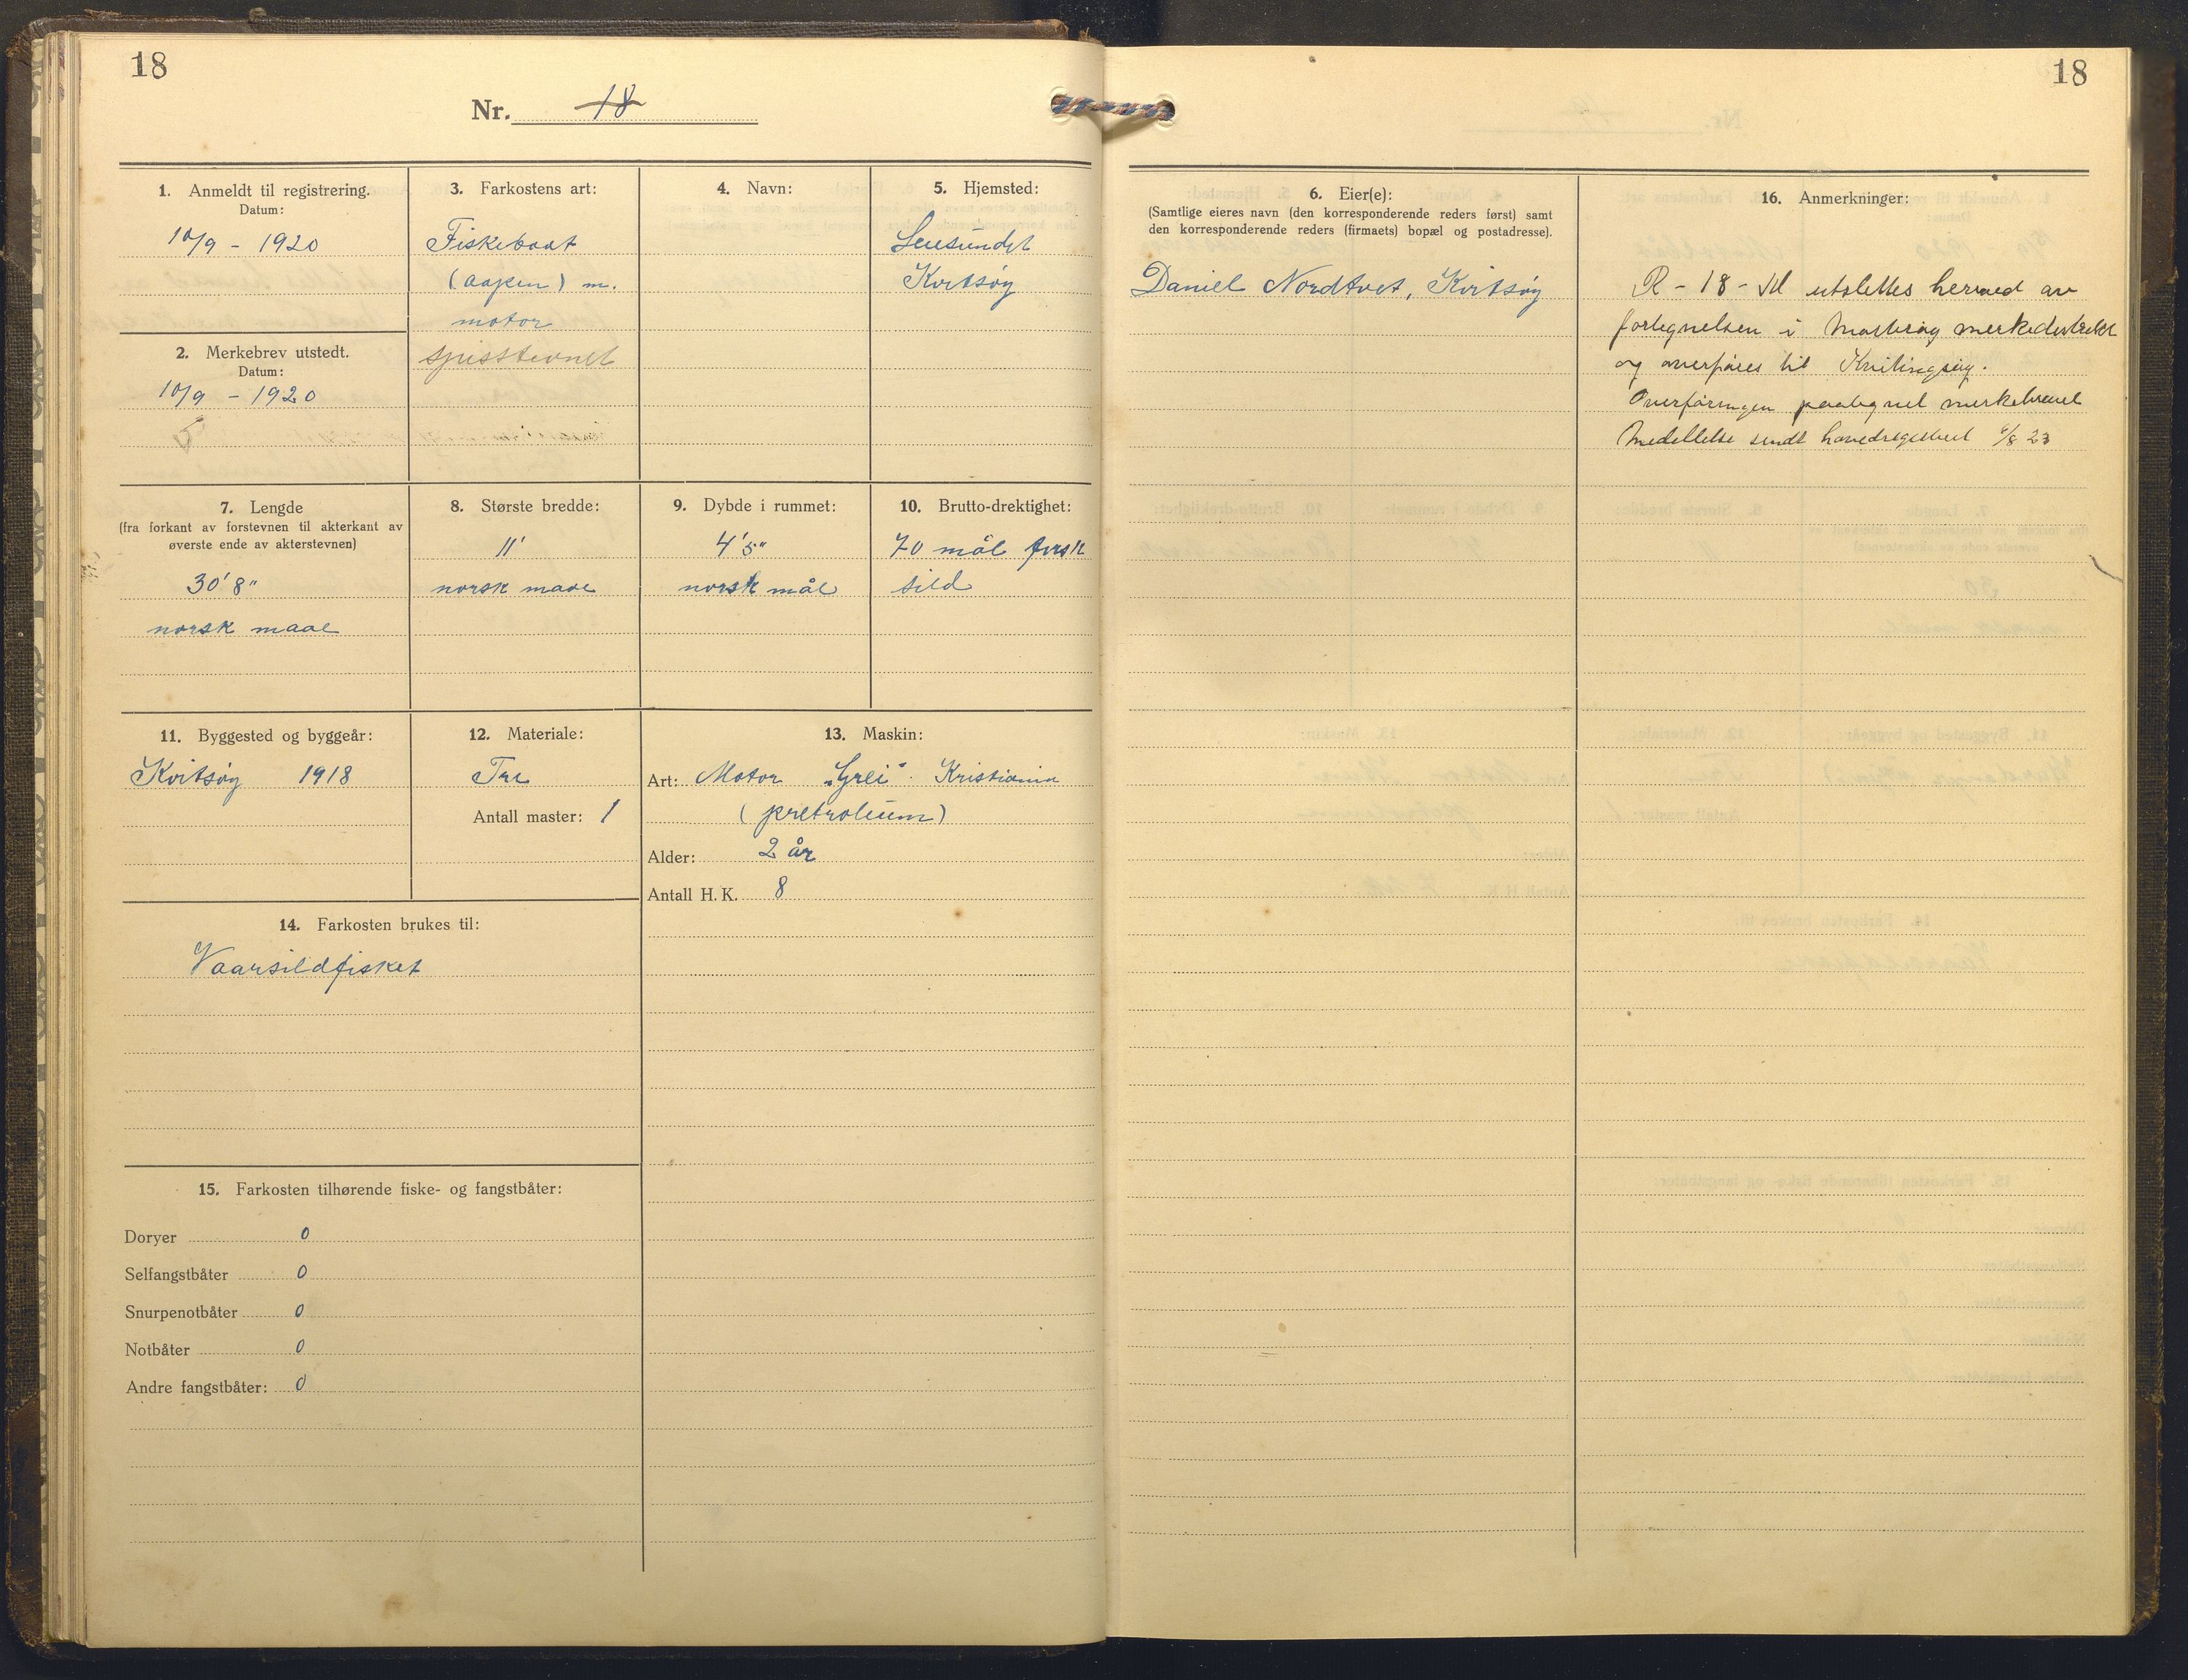 18
Nr. 18
1. Anmeldt til registrering.
Datum:
10/9 - 1920
2. Merkebrev utstedt.
Datum:
10/9 - 1920
3. Farkostens art:
Fiskebaat
(aapen) m.
motor
spisstevnet
4. Navn:
5. Hjemsted:
Kvitsøy
7. Lengde
(fra forkant av forstevnen til akterkant av
øverste ende av akterstevnen)
30' 8"
norsk maal
8. Største bredde:
11'
norsk maal
9. Dybde i rummet:
4' 5"
norsk mål
10. Brutto-drektighet:
70 mål fersk
sild
11. Byggested og byggeår:
Kvitsøy 1918
12. Materiale:
Tre
Antall master: 1
13. Maskin:
Art: Motor „Grei" Kristiania
(pretroleum)
Alder: 2 år
Antall H. K. 8
14. Farkosten brukes til:
Vaarsildfisket
15. Farkosten tilhørende fiske- og fangstbåter:
Doryer 0
Selfangstbåter 0
Snurpenotbåter 0
Notbåter 0
Andre fangstbåter: 0
18
6. Eier(e):
(Samtlige eieres navn (den korresponderende reders først) samt
den korresponderende reders (firmaets) bopæl og postadresse).
Daniel Nordtvet, Kvitsøy
16. Anmerkninger:
R - 18 - utslettes herved av
fortegnelsen i merkedistrikt
og overføres til
Overføringen paategnet merkebrevet
Meddellelse sendt hovedregisteret /8 23